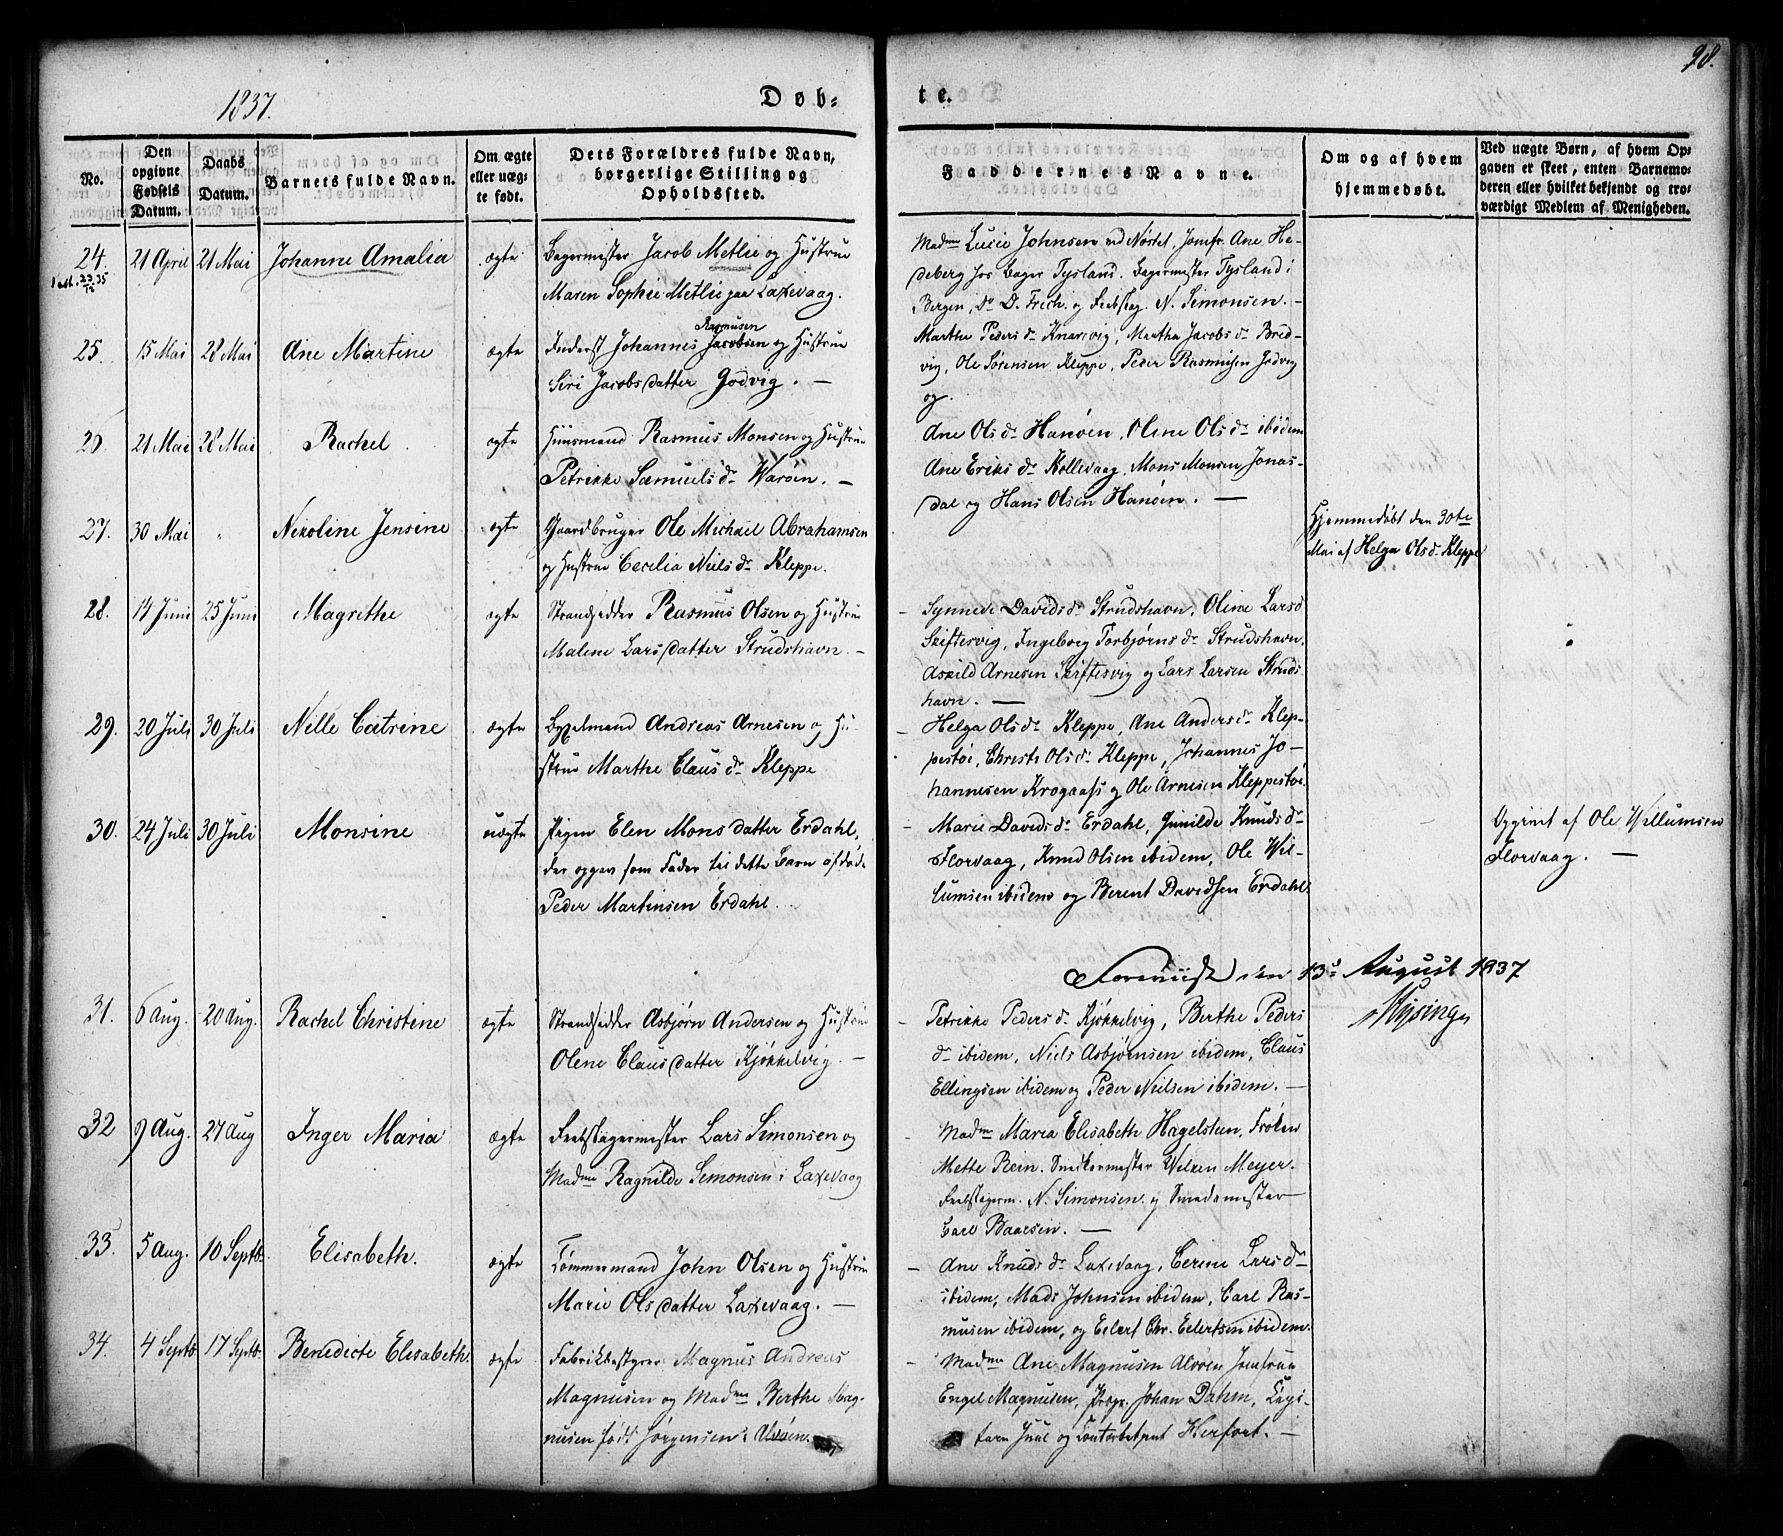 98.
1837.
Døb-
te.
No.
Den opgivne Fødsels Datum.
Daabs Datum.
Barnets fulde Navn.
Om ægte eller uægte født.
Dets Forældres fulde Navn, borgerlige Stilling og Opholdssted.
Faddernes Navne.
Om og af hvem hjemmedøbt.
Ved uægte Børn, af hvem Opgaven er skeet, enten Barnemoderen eller hvilket bekjendt og troværdigt Medlem af Menigheden.
24. 21 April 21 Mai Johanne Amalia ægte Bagermester Jacob Metlie og Hustrue
Maren Sophie Metlie paa Laxevaag.
Madme Lucie Johnsen ved Nøstet, Jomfr. Ane He-
deberg hos Bager Tysland. Bagermester Tysland i
Bergen, do D. Frich. og N. Simonsen. -
25. 15 Mai 28 Mai Ane Martine ægte Inderst Johannes Jacobsen og Hustrue
Rasmusen
Siri Jacobsdatter Godvig. -
Marthe Peders dr Knarrvig, Martha Jacobs dr Bred-
vig, Ole Sørensen Kleppe, Peder Rasmusen Godvig
og
26. 21 Mai 28 Mai Rachel ægte Huusmand Rasmus Monsen og Hustrue
Petrikke Samuels dr Warøen. -
Ane Ols dr Hanøen, Oline Ols dr ibidem
Ane Eriks dr Kollevaag, Mons Monsen Jonas-
dal og Hans Olsen Hanøen. -
27. 30 Mai " Nekoline Jensine ægte Gaardbruger Ole Michael Abrahamsen
og Hustrue Cecilia Niels dr Kleppe.
Hjemmedøbt den 30te
Mai af Helga Ols dr Kleppe
28. 14 Juni 25 Juni Magrethe ægte Strandsidder Rasmus Olsen og Hustrue
Malene Larsdatter Strudshavn -
Synneve Davids dr Strudshavn, Oline Lars d
Skiftesvig, Ingeborg Torbjørns dr Strudshavn,
Askild Arnesen Skiftesvig og Lars Larsen Struds
havn. -
29. 20 Juli 30 Juli Nille Catrine ægte Bygselmand Andreas Arnesen og Hu-
strue Marthe Claus dr Kleppe
Helga Ols dr Kleppe, Ane Anders dr Klep-
pestøe, Christi Ols dr Kleppe, Johannes Jo-
hannesen Krogaass og Ole Arnesen Kleppestøe
30. 24 Juli 30 Juli Monsine uægte Pigen Elen Monsdatter Erdahl,
der opgav som Fader til dette Barn afdøde
Peder Martinsen Erdahl.
Marie Davids dr Erdahl, Gunilde Knuds dr
Florvaag, Knud Olsen ibidem, Ole Wil-
lumsen ibidem og Berent Davidsen Erdahl
Opgivet af Ole Willumsen
Florvaag. -
den 13de August 1837
31. 6 Aug. 20 Aug. Rachel Christine ægte Strandsidder Asbjørn Andersen og Hustrue
Olene Clausdatter Kjøkkelvig. -
Petrikke Peders d. Kjøkkelvig, Berthe Peders
dr ibidem, Niels Asbjørnsen ibidem, Claus
Ellingsen ibidem og Peder Nielsen ibidem. -
32 9 Aug. 27 Aug Inger Maria ægte Reebslagermester Lars Simonsen og
Madme Ragnilde Simonsen i Laxevaag
Madme Maria Elisabeth Hagelsteen, Frøken
Mette Rein. Snedkermester Welken Meyer.
Reebslagerm. N. Simonsen og Smedemester
Carl Baarsen. -
33. 5 Aug. 10 Septb. Elisabeth. ægte Tømmermand John Olsen og Hustrue
Marie Olsdatter Laxevaag. -
Ane Knuds dr Laxevaag, Cerine Lars dr
ibidem, Mads Johnsen ibidem, Carl Ras-
musen ibidem, og Eilert Chr. Eilertsen ibidem.
34. 4 Septb 17 Septb. Benedicte Elisabeth. ægte Fabrikbestyrer Magnus Andreas
Magnusen og Madme Berthe Mag-
nusen født Jørgensen i Alvøen.
Madme Ane Magnusen Alvøen Jomfrue
Engel Magnusen, Johan Dahm,
Juul og Herfort. -